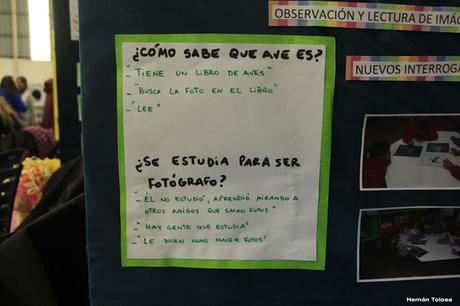 OBSERVACIÓN Y LECTURA DE IMÁG
NUEVOS INTERROGA
¿CÓMO SABE QUE AVE ES?
-"TIENE UN LIBRO DE AVES"
-"BUSCA LA FOTO EN EL LIBRO"
-"LEE"
¿SE ESTUDIA PARA SER
FOTÓGRAFO?
-"ÉL NO ESTUDIÓ, APRENDIÓ MIRANDO A
OTROS AMIGOS QUE SACAN FOTOS"
-"HAY GENTE QUE ESTUDIA"
-"LE DICEN COMO HACER FOTOS"
Hernán Tolosa